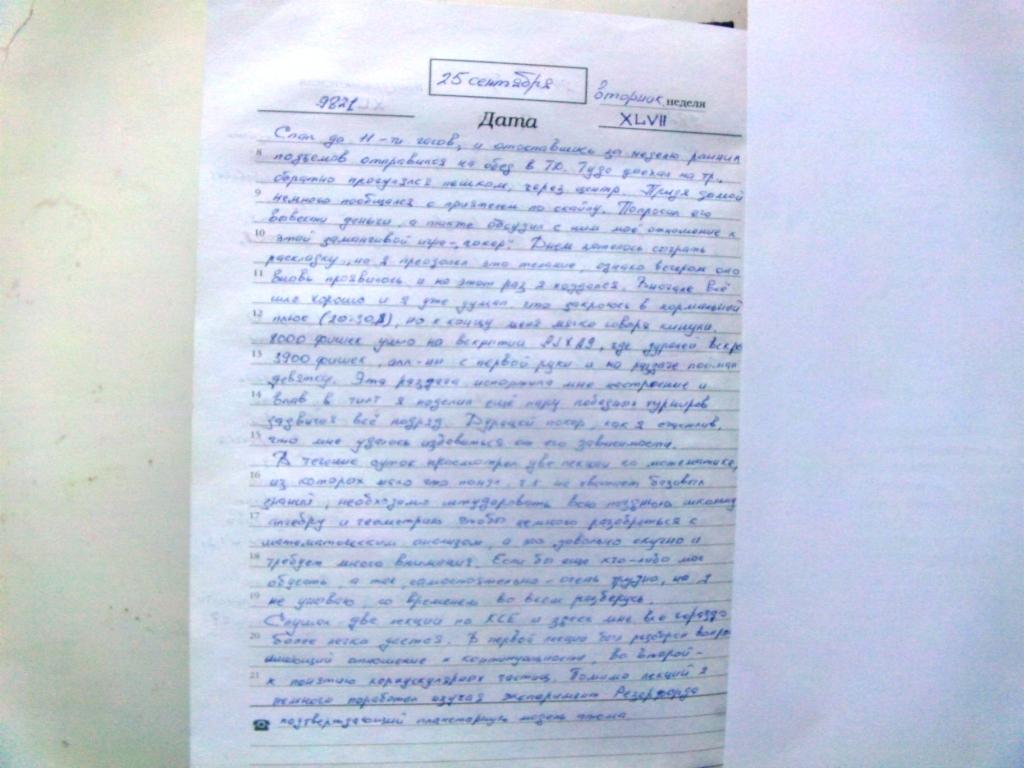 25 сентября
вторник неделя
9821
Дата
XLVII
Спал до 11-ти часов, и отоспавшись за неделю ранних
8 подъемов отправился на обед в ТЮ. Туда доехал на тр.,
обратно прогулялся пешком, через центр. Придя домой
9 немного пообщался с приятелем по скайпу. Попросил его
вывести деньги, а также обсудил с ним моё отношение к
10 этой заманчивой игре-„покер“. Днем хотелось сыграть
раскладку, но я преодолел это желание, однако вечером оно
11 вновь проявилось и на этот раз я поддался. Вначале всё
шло хорошо и я уже думал, что закроюсь в нормальный
12 плюс (20-30$), но к концу меня мягко говоря кинули.
8000 фишек ушло на вскрытии где дурачок вскро
13 3900 фишек, алл-ин с первой руки и на раздаче поймал
девятку. Эта раздача испортила мне настроение и
14 впав в тилт я наделал ещё пару турниров
задвигая всё подряд. Дурацкий покер, как я счастлив,
15 что мне удалось избавиться от его зависимости.
В течение суток просмотрел две лекции по математике,
16 из которых мало что понял, т.к. не хватает базовых
знаний, необходимо проштудировать всю школьную
17 алгебру и геометрию чтобы немного разобраться с
математическим анализом, а это довольно скучно и
18 требует много внимания. Если бы еще кто-либо мог
объяснить, а так, самостоятельно - очень трудно, но я
19 не унываю, со временем во всем разберусь.
Слушал две лекции по КСЕ и здесь мне всё гораздо
20 более легко дается. В первой лекции был разобран вопрос
имеющий отношение к континуальности, во второй-
21 к понятию корпускулярных частиц. Помимо лекций я
немного поработал изучая эксперимент Резерфорда
подтверждающий планетарную модель атома.